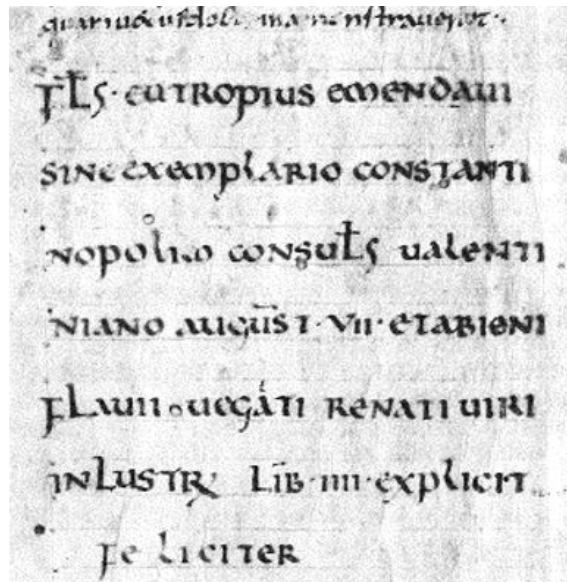 FLS · EUTROPIUS EMENDAUI
SINE EXEMPLARIO CONSTANTI
NOPOLIO CONSULS UALENTI
NIANO AUGUST · VII · ETABIENI
FLAUII UEGATI RENATI UIRI
INLUSTR LIB · IIII · EXPLICIT
FELICITER